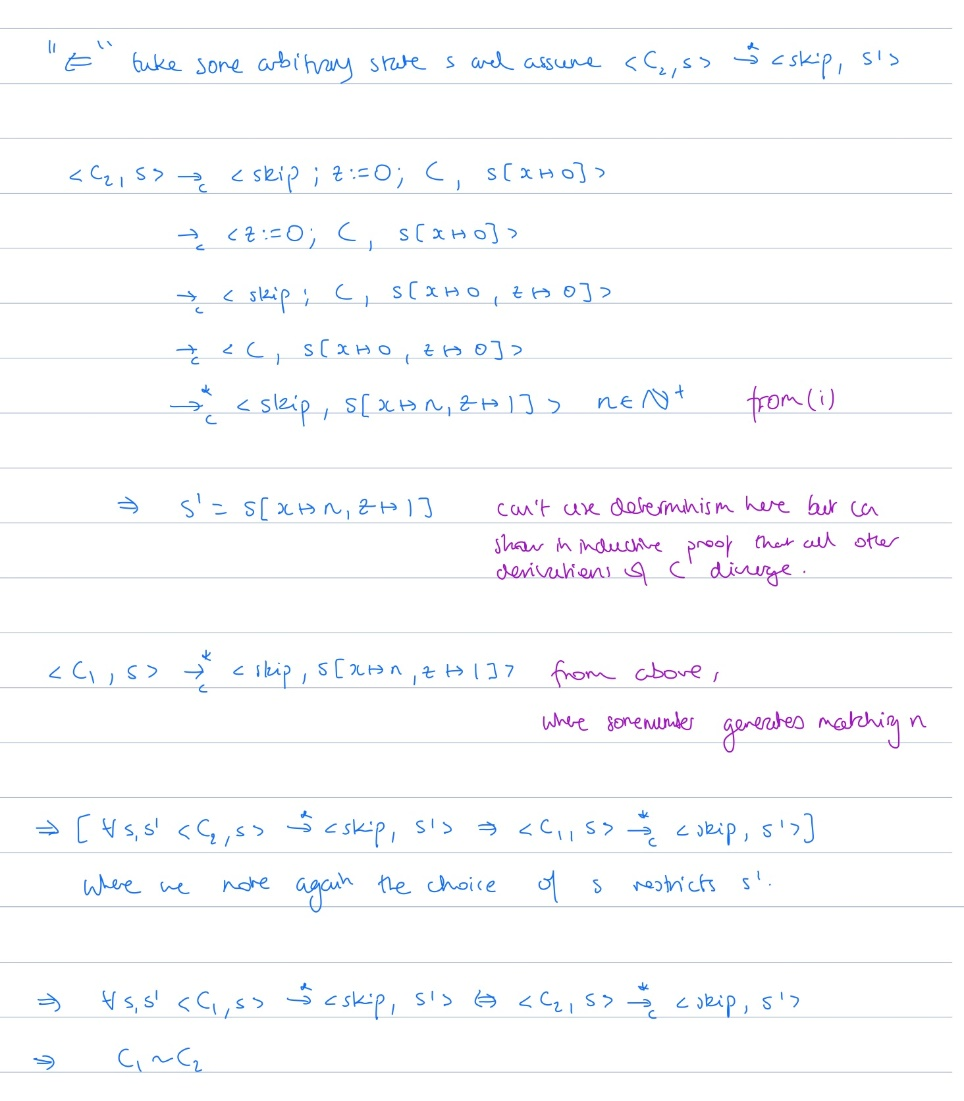 "⇐" take some arbitrary state s and assume <C₂,s> →* <skip, s'>
<C₂, s> →c <skip ; z:=0; C, s[x↦0]>
→c <z:=0; C, s[x↦0]>
→c <skip; C, s[x↦0, z↦0]>
→c <C, s[x↦0, z↦0]>
→c* <skip, s[x↦n, z↦1]> n∈ℕ⁺ from (i)
⇒ s' = s[x↦n, z↦1] can't use determinism here but can
show in inductive proof that all other
derivations of C diverge.
<C₁, s> →c* <skip, s[x↦n, z↦1]> from above,
where somenumber generates matching n
⇒ [∀s,s' <C₂,s> →* <skip, s'> ⇒ <C₁,s> →c* <skip, s'>]
where we note again the choice of s restricts s'.
⇒ ∀s,s' <C₁,s> →* <skip, s'> ⇔ <C₂,s> →c* <skip, s'>
⇒ C₁ ~ C₂